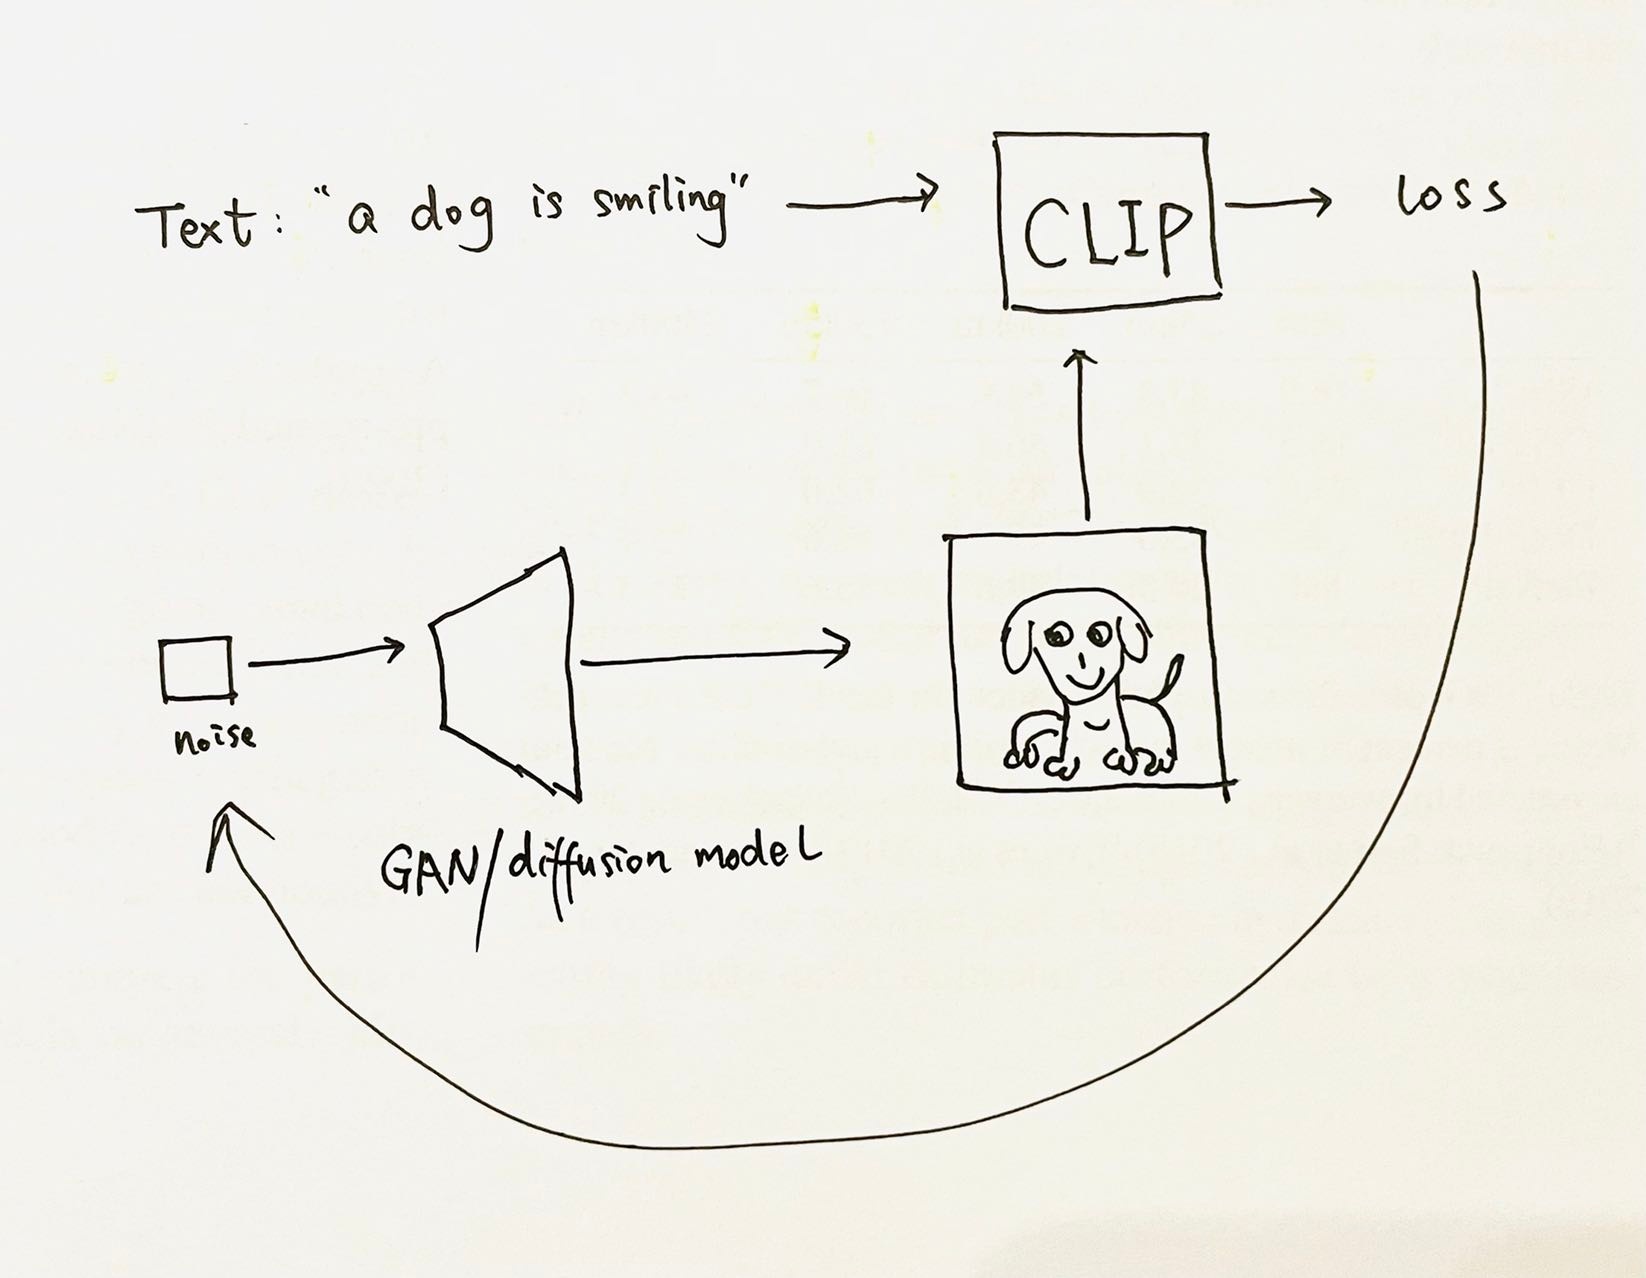 Text: "a dog is smiling"
CLIP
loss
noise
GAN/diffusion model